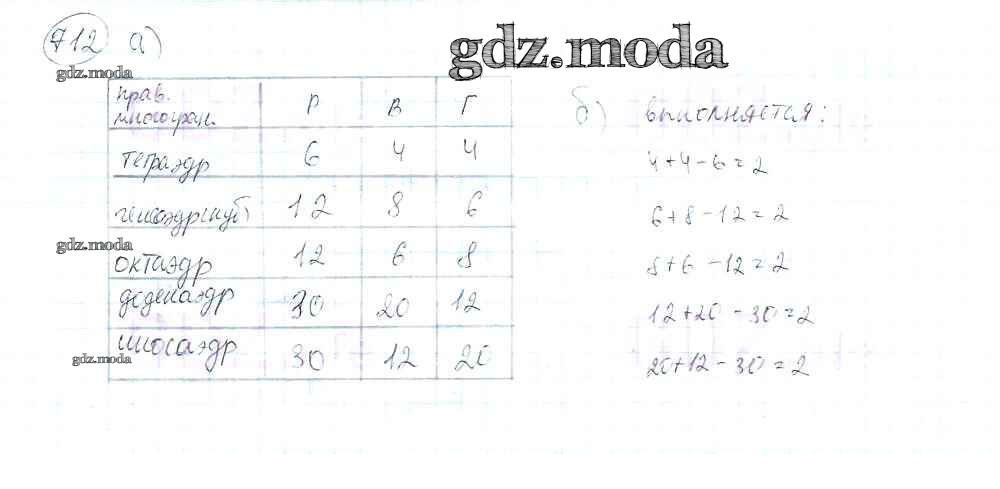 712 а)
gdz.moda
gdz.moda
прав. многогран. Р В Г
тетраэдр 6 4 4
гексаэдр(куб) 12 8 6
gdz.moda
октаэдр 12 6 8
додекаэдр 30 20 12
икосаэдр 30 12 20
gdz.moda
б) выполняется:
4+4-6=2
6+8-12=2
8+6-12=2
12+20-30=2
20+12-30=2